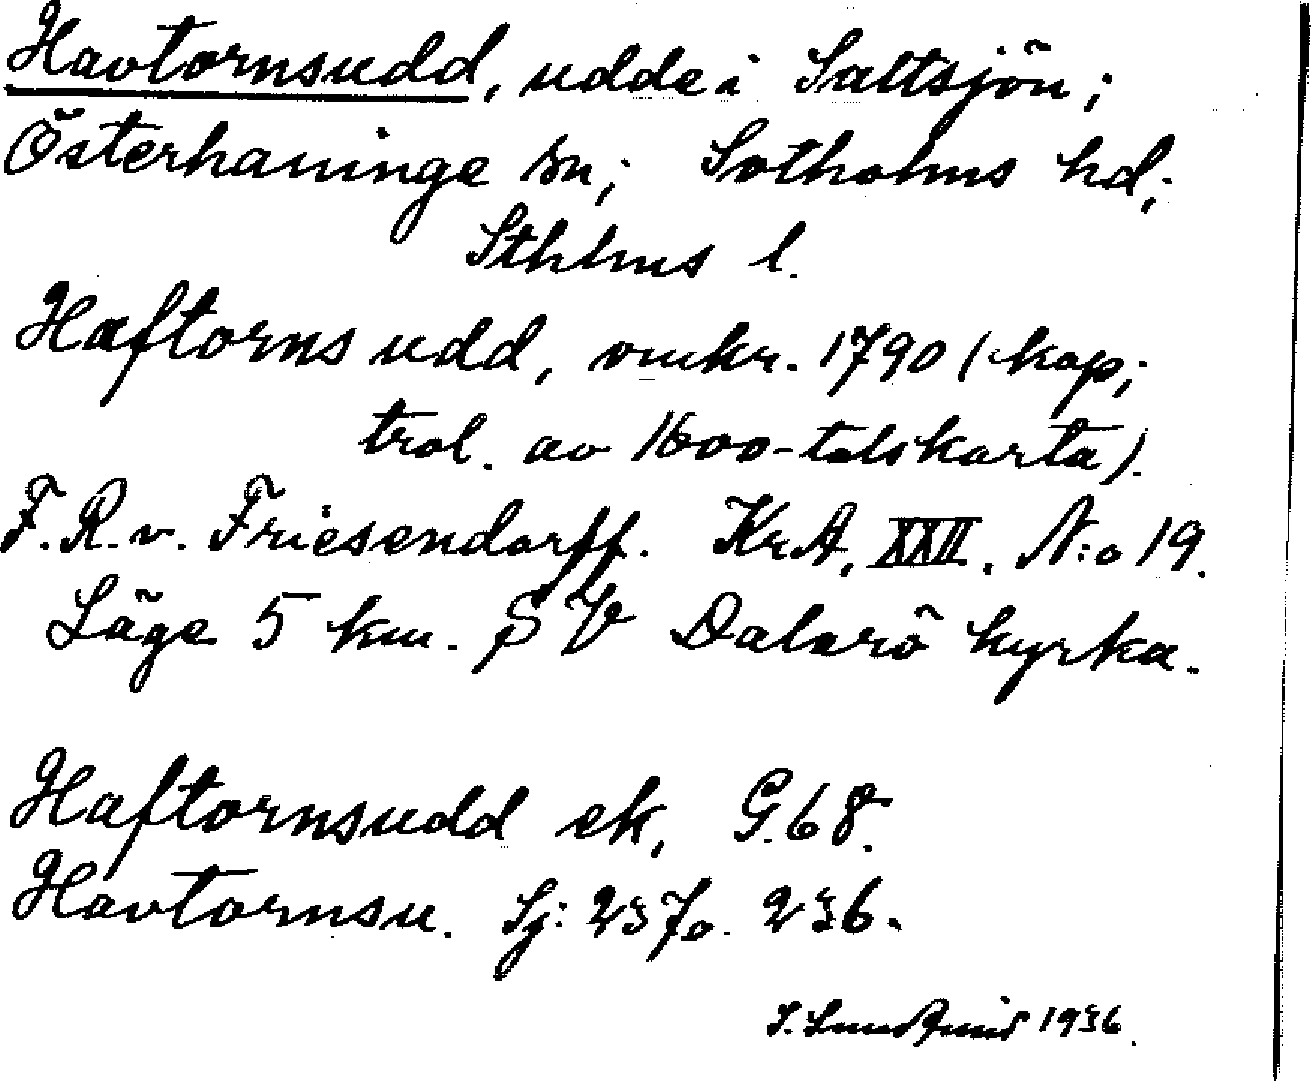 Havtornsudd, udde i Saltsjön;
Österhaninge sn; Sotholms hd;
Sthlms l.
Haftorns udd, omkr. 1790 (kop;
trol. av 1600-talskarta).
F.R.v. Friesendorff. KrA, XXII. N:o 19.
Läge 5 km. SV Dalarö kyrka.
Haftornsudd ek, G.68.
Havtornsu. Sj: 2370. 236.
S. Lundquist 1936.